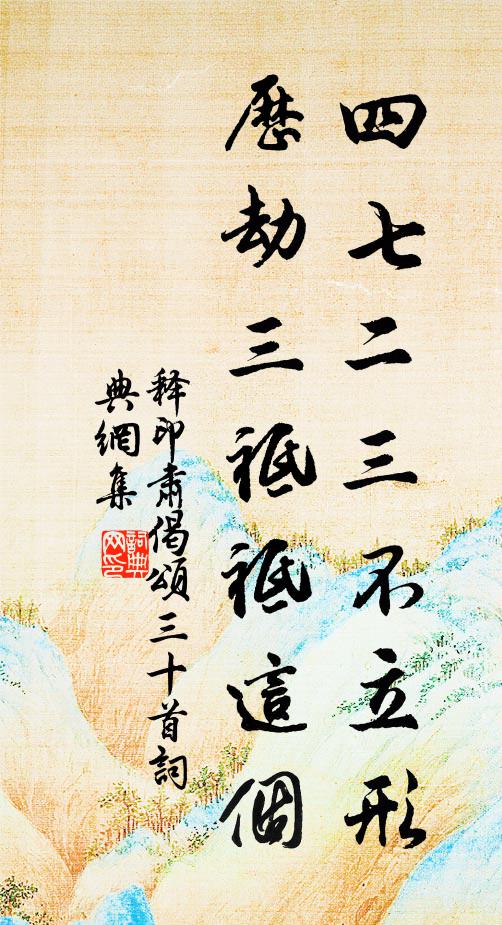 四七二三不立形
歷劫三祗祗這個
释印肅偈頌三十首詞
典網集
詞典
网印